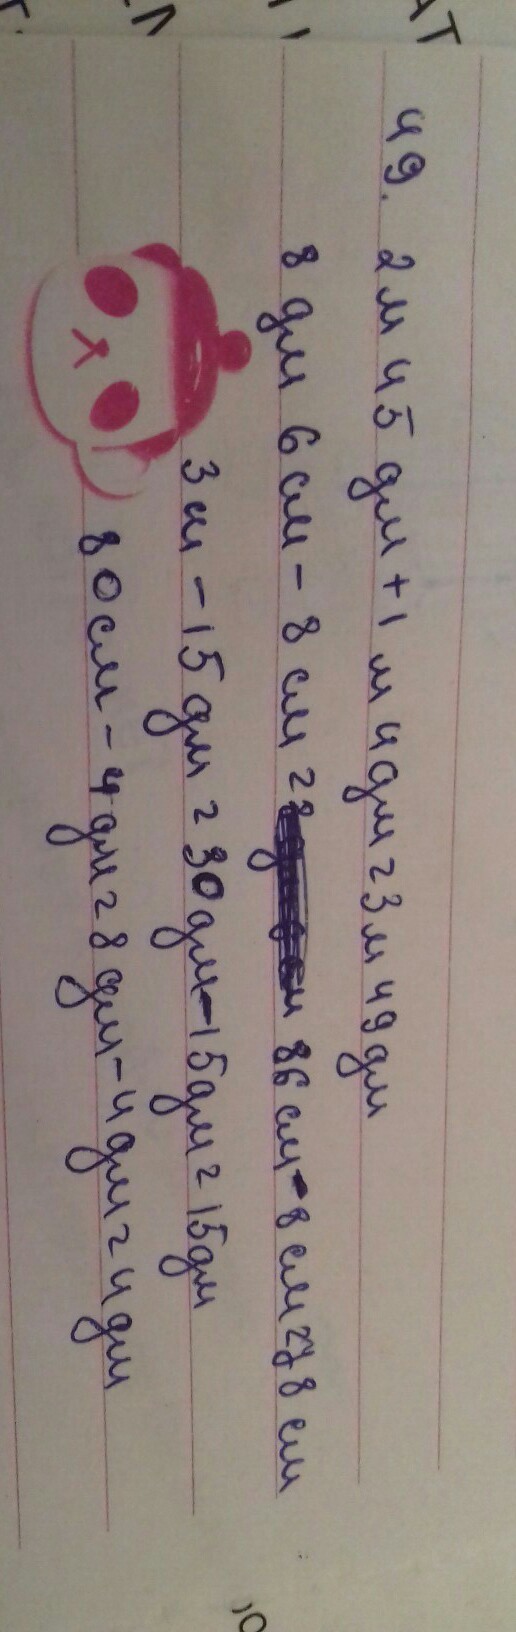 49. 2 м 45 дм + 1 м 4 дм = 3 м 49 дм
8 дм 6 см - 8 см = 86 см - 8 см = 78 см
3 м - 15 дм = 30 дм - 15 дм = 15 дм
80 см - 4 дм = 8 дм - 4 дм = 4 дм